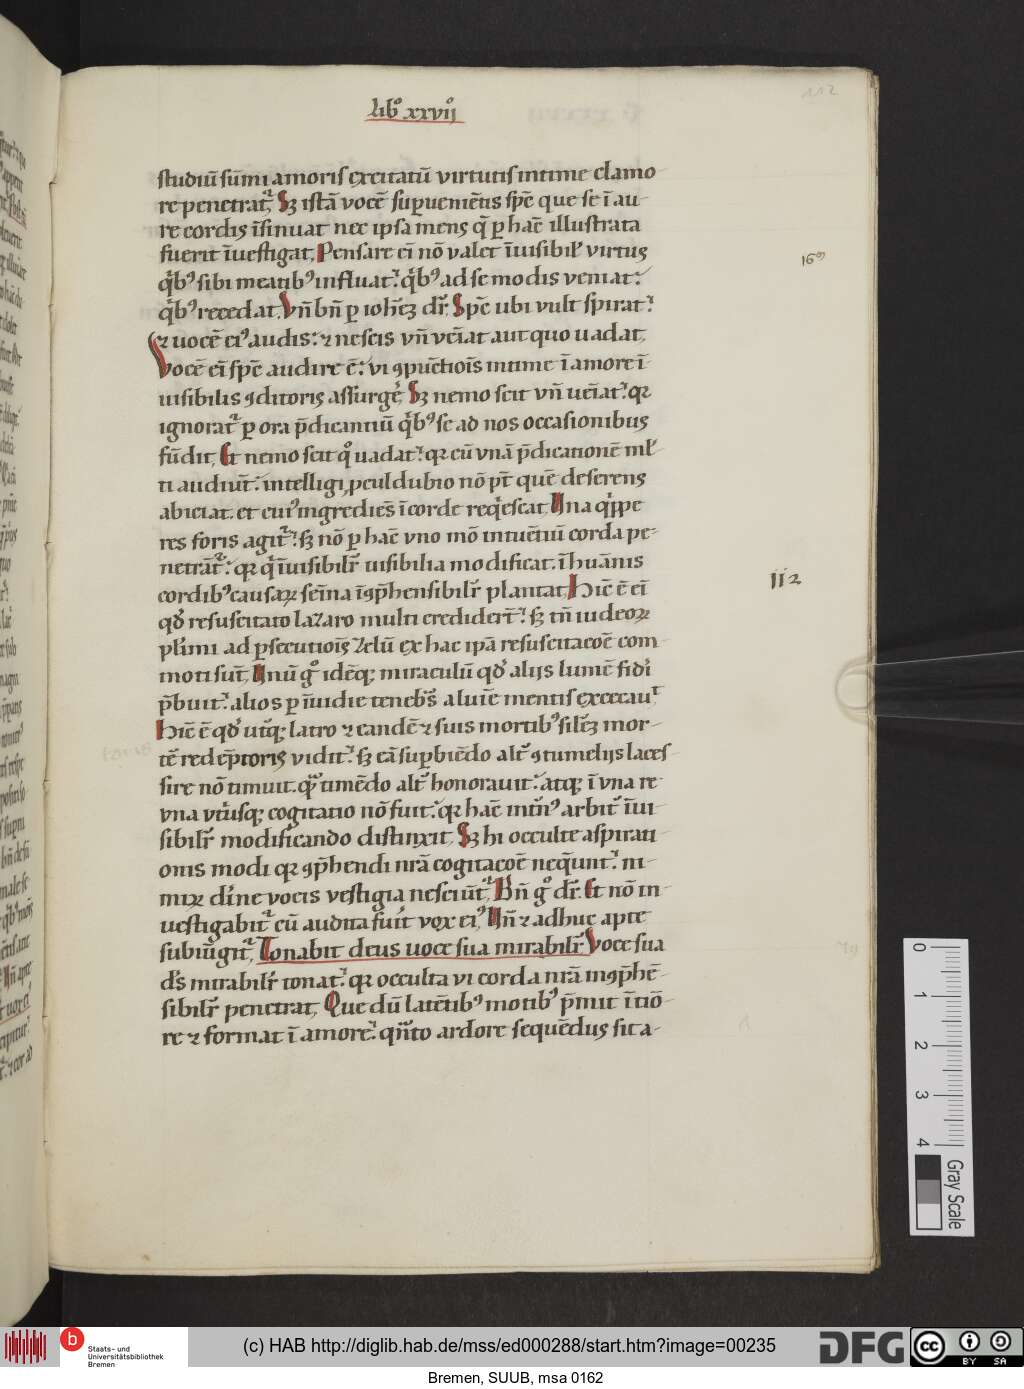 libº xxvijº
112
studiū sūmi amoris excitatū virtutis intime clamo-
re penetrat᷑, Sꝫ istā vocē supuenientis spē que se ī au-
re cordis īsinuat nec ipsa mens q̄ p hac̄ illustrata
fuerit īuestigat, Pensare ei̅ nō valet īuisibil̓ virtus
qⁱbꝰ sibi meatibꝰ influat: qⁱbꝰ ad se modis veniat:
qⁱbꝰ recedat, Vn̄ bn̄ p ioh̄eꝫ dr̄. Spē ubi vult spirat:
⁊ vocē eiꝰ audis: ⁊ nescis vn̄ veīat aut quo uadat,
Vocē ei̅ spē audire ē: vi ꝯpūctiois̄ intime ī amorē ī-
uisibilis ꝯditoris assurge᷑, Sꝫ nemo scit vn̄ ueīat: qꝛ
ignorat᷑ p ora p̄dicantiū qⁱbꝰ se ad nos occasionibus
fūdit, Et nemo scit qº uadat: qꝛ cū vnā p̄dicationē ml̓-
ti audiūt: intelligi ꝓculdubio nō pt̄ quē deserens
abiciat. et cuiꝰ ingrediēs ī corde reqⁱescat, Una qⁱppe
res foris agit᷑: sꝫ nō p hac̄ vno mō intuētiū corda pe-
netrāt᷑: qꝛ qⁱ īuisibilr̄ uisibilia modificat. ī huānis
cordibꝰ causaꝝ seīna īꝯp̄hensibilr̄ plantat, Hic̄ ē ei̅
qd̓ resuscitato lazaro multi credidert̄: sꝫ tn̄ iudeoꝝ
pl̓imi ad psecutiois̄ zelū ex hac ipā resuscitacoē com-
moti sūt, Unū gº idēqꝫ miraculū qd̓ alijs lumē fidi᷑
p̄buit: alios p īuidie tenebs̄ a luīe mentis excecau᷑
Hic̄ ē qd̓ ut̄qꝫ latro ⁊ eandē ⁊ suis mortibꝰ sil̓eꝫ mor-
tē redēptoris vidit: sꝫ eā supbiēdo alt̄ ꝯtumelijs laces-
sire nō timuit. quā timēdo alt̄ honorauit: atqꝫ ī vna re
vna vt̄usqꝫ cogitatio nō fuit: qꝛ hac̄ int̄nꝰ arbit̄ īui-
sibilr̄ modificando distinxit, Sꝫ hi occulte aspirati-
onis modi qꝛ ꝯp̄hendi nr̄ā cogitacoē neqūnt: ni-
miꝝ di᷑ne vocis vestigia nesciūt᷑, Bn̄ gº dr̄. Et nō in-
uestigabit᷑ cū audita fui᷑t vox eiꝰ, Un̄ ⁊ adhuc apte
subiūgit᷑, Tonabit deus uoce sua mirabilr̄ Voce sua
ds̄ mirabilr̄ tonat: qꝛ occulta vi corda nr̄ā inꝯp̄hē-
sibilr̄ penetrat, Que dū latētibꝰ motibꝰ p̄mit ī tio̅-
re ⁊ format ī amore: qn̄to ardore sequēdus sit a-
16m
112
0 1 2 3 4
Gray Scale
b Staats- und
Universitätsbibliothek
Bremen
(c) HAB http://diglib.hab.de/mss/ed000288/start.htm?image=00235
DFG
cc BY SA
Bremen, SUUB, msa 0162